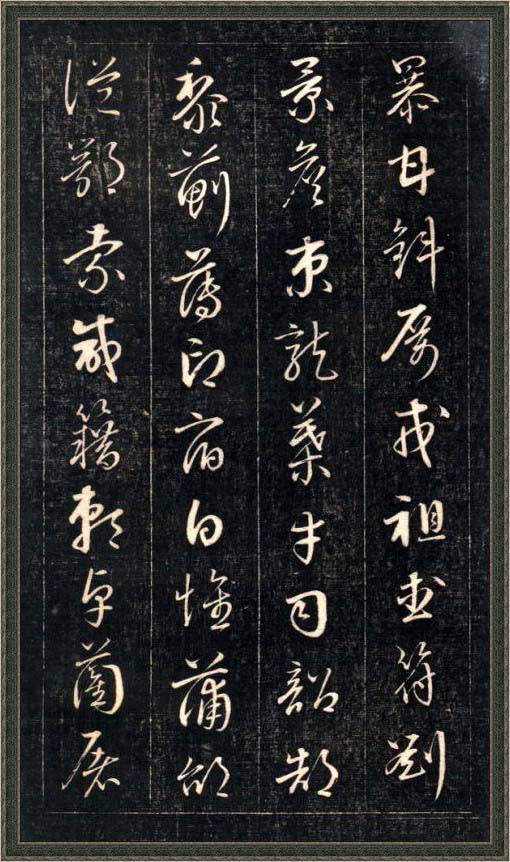 暴甘鈄厲戎祖武符劉
景詹束龍葉幸司韶郜
黎薊薄印宿白懷蒲邰
從鄂索咸籍賴卓藺屠